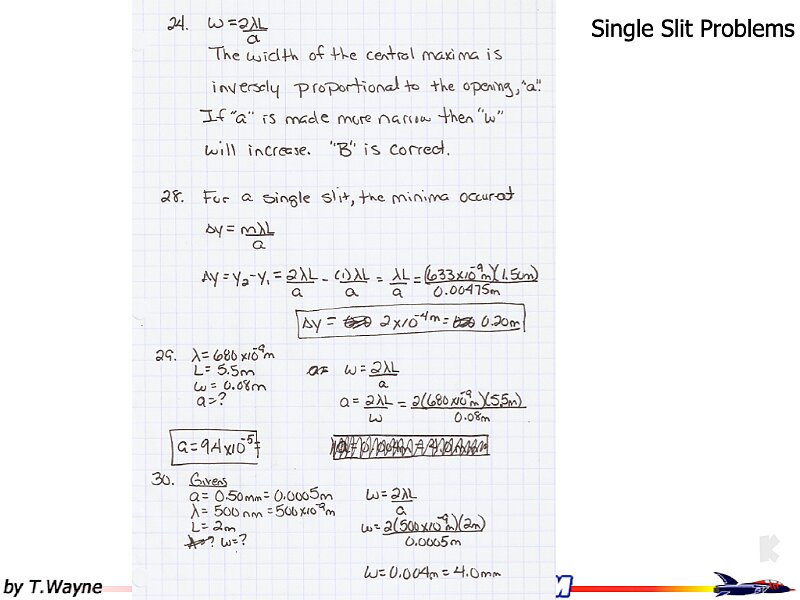 Single Slit Problems
24. W = 2λL
a
The width of the central maxima is
inversely proportional to the opening, "a".
If "a" is made more narrow then "w"
will increase. "B" is correct.
28. For a single slit, the minima occur at
Δy = mλL
a
Δy = y₂-y₁ = 2λL - (1)λL = λL = (633x10⁻⁹m)(1.50m)
a a a 0.00475m
Δy = 2x10⁻⁴m = 0.20m
29. λ = 680x10⁻⁹m
L = 5.5m a= w = 2λL
w = 0.08m a
a = ? a = 2λL = 2(680x10⁻⁹m)(5.5m)
w 0.08m
a = 9.4x10⁻⁵
30. Givens
a = 0.50mm = 0.0005m w = 2λL
λ = 500nm = 500x10⁻⁹m a
L = 2m w = 2(500x10⁻⁹m)(2m)
w = ? 0.0005m
w = 0.004m = 4.0mm
by T.Wayne